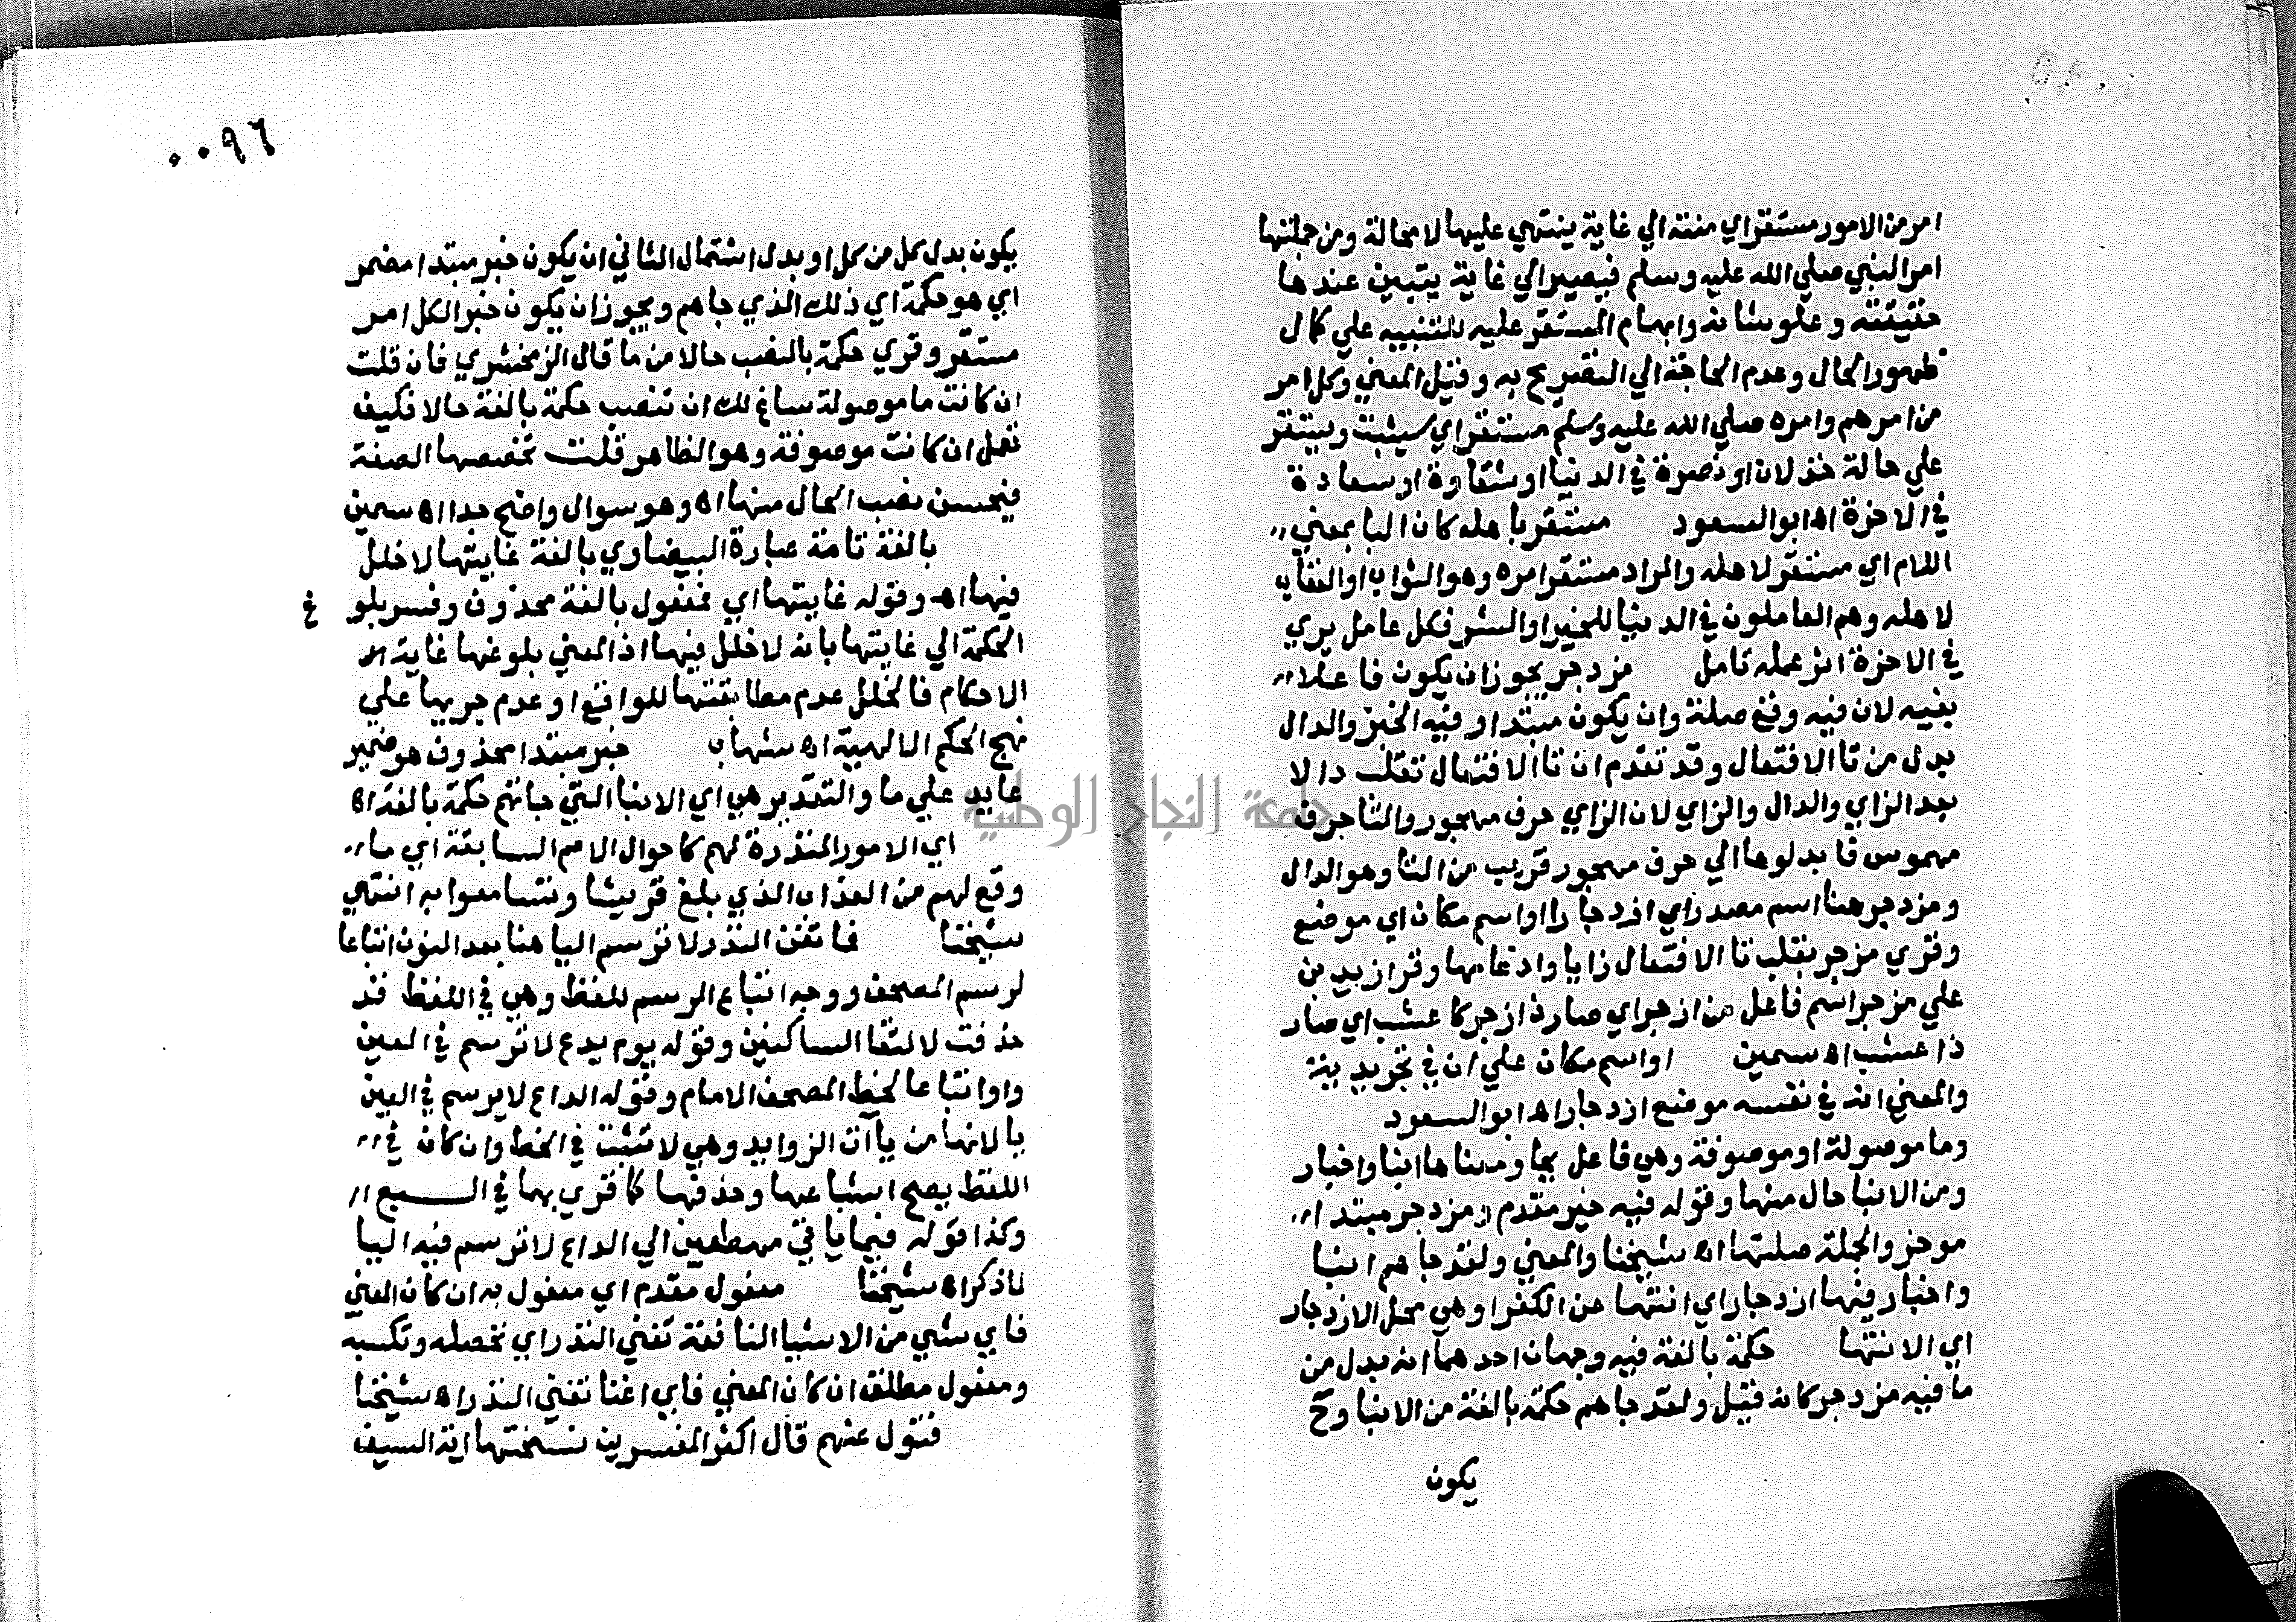 امر من الامور مستقر اي منته الي غاية ينتهي عليها لا محالة ومن جملتها
امر النبي صلي الله عليه وسلم فيصير الي غاية يتبين عندها
حقيقته وعلو شانه وابهام المستقر عليه للتنبيه علي كمال
ظهور الحال وعدم الحاجة الي التصريح به وقيل المعني وكل امر
من امرهم وامره صلي الله عليه وسلم مستقر اي سيثبت ويستقر
علي حالة خذلان او نصرة في الدنيا او شقاوة او سعادة
في الاخرة اه ابو السعود مستقر باهله كان البا بمعني
اللام اي مستقر لاهله والمراد مستقر امره وهو الثواب او العقاب
لاهله وهم العاملون في الدنيا للخير او الشر فكل عامل يري
في الاخرة اثر عمله تامل مزدجر يجوز ان يكون فاعلا
بفيه لان فيه وقع صلة وان يكون مبتدا وفيه الخبر والدال
بدل من تا الافتعال وقد تقدم ان تا الافتعال تقلب دالا
بعد الزاي والدال والزاي لان الزاي حرف مهجور والتا حرف
مهموس فابدلوها الي حرف مهجور قريب من التا وهو الدال
ومزدجر هنا اسم مصدر اي ازدجارا او اسم مكان اي موضع
وقري مزجر بقلب تا الافتعال زايا وادغامها وقرا زيد بن
علي مزجر اسم فاعل من ازجر اي صار ذا زجر كاعشب اي صار
ذا عشب اه سمين او اسم مكان علي ان في تجريدية
والمعني انه في نفسه موضع ازدجار اه ابو السعود
وما موصولة او موصوفة وهي فاعل بجا ومعناها انبا واخبار
ومن الانبا حال منها وقوله فيه خبر مقدم ومزدجر مبتدا
موخر والجملة صلتها اه شيخنا والمعني ولقد جاهم انبا
واخبار فيها ازدجار اي انتها عن الكفر او هي محل الازدجار
اي الانتها حكمة بالغة فيه وجهان احدهما انه بدل من
ما فيه مزدجر كانه قيل ولقد جاهم حكمة بالغة من الانبا وح
يكون
٠٠٩٦
يكون بدل كل من كل او بدل اشتمال الثاني ان يكون خبر مبتدا مضمر
اي هو حكمة اي ذلك الذي جاهم ويجوز ان يكون خبر الكل امر
مستقر وقري حكمة بالنصب حالا من ما قال الزمخشري فان قلت
ان كانت ما موصولة ساغ لك ان تنصب حكمة بالغة حالا فكيف
تعمل ان كانت موصوفة وهو الظاهر قلت تخصصها الصفة
فيحسن نصب الحال منها اه وهو سوال واضح جدا اه سمين
بالغة تامة عبارة البيضاوي بالغة غايتها لا خلل
فيها اه وقوله غايتها اي فمفعول بالغة محذوف وفسر بلو غ
الحكمة الي غايتها بانه لا خلل فيها اذ المعني بلوغها غاية
الاحكام فالخلل عدم مطابقتها للواقع او عدم جريها علي
نهج الحكم الالهية اه شهاب خبر مبتدا محذوف هو ضمير
عايد علي ما والتقدير هي اي الانبا التي جاتهم حكمة بالغة اه
اي الامور المنذرة لهم كاحوال الامم السابقة اي ما
وقع لهم من العذاب الذي بلغ قريشا وتسامعوا به انتهي
شيخنا فما تغن النذر لا ترسم اليا هنا بعد النون اتباعا
لرسم المصحف ووجه اتباع الرسم للفظ وهي في اللفظ قد
حذفت لالتقا الساكنين وقوله يوم يدع لا ترسم في العين
واوا اتباعا لخط المصحف الامام وقوله الداع لا يرسم في العين
يا لانها من ياآت الزوايد وهي لا تثبت في الخط وان كان في
اللفظ يصح اشباعها وحذفها كما قري بهما في السبع
وكذا قوله فيما ياتي مهطعين الي الداع لا ترسم فيه اليا
لما ذكر اه شيخنا مفعول مقدم اي مفعول به ان كان المعني
فاي شي من الاشيا النافعة تغني النذر اي تحصله وتكسبه
ومفعول مطلق ان كان المعني فاي اغنا تغني النذر اه شيخنا
فتول عنهم قال اكثر المفسرين نسختها اية السيف
جامعة النجاح الوطنية